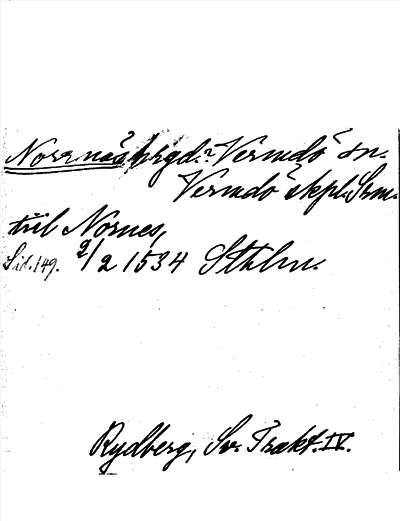 Norrnäs hrgd.? Vermdö sn.
Vermdö skpl. Srm.
till Nornes,
Sid. 149. 9/2 1534 Sthlm.
Rydberg, Sv. Trakt. IV.